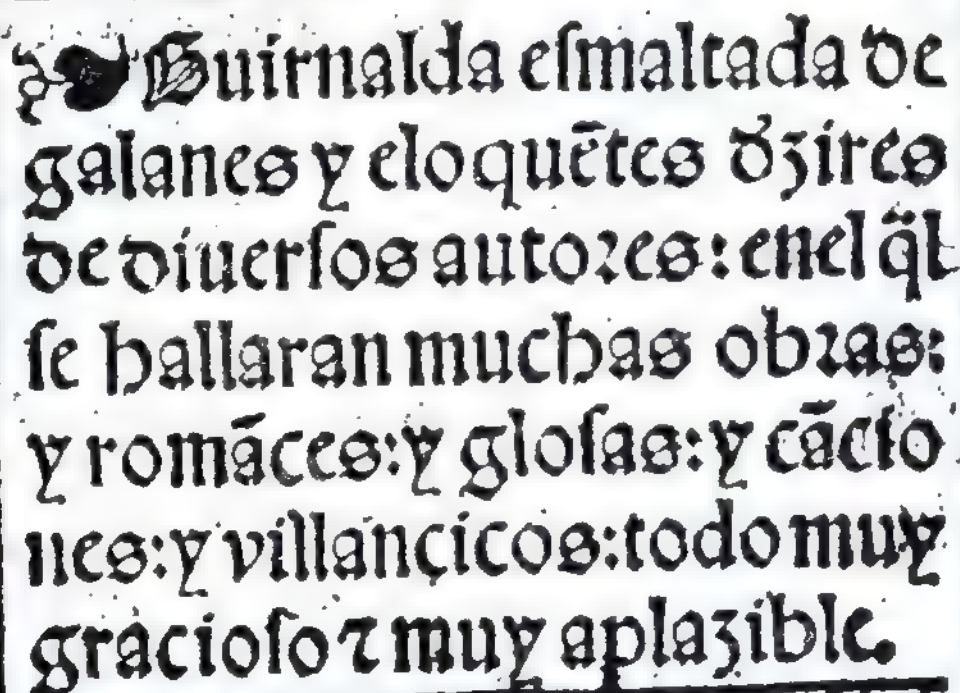 ❧ Guirnalda eſmaltada de
galanes y eloquētes d̓zires
de diuerſos autoꝛes: enel q̃l
ſe hallaran muchas obꝛas:
y romāces: y gloſas: y cācio
nes: y villançicos: todo muy
gracioſo ⁊ muy aplazible.